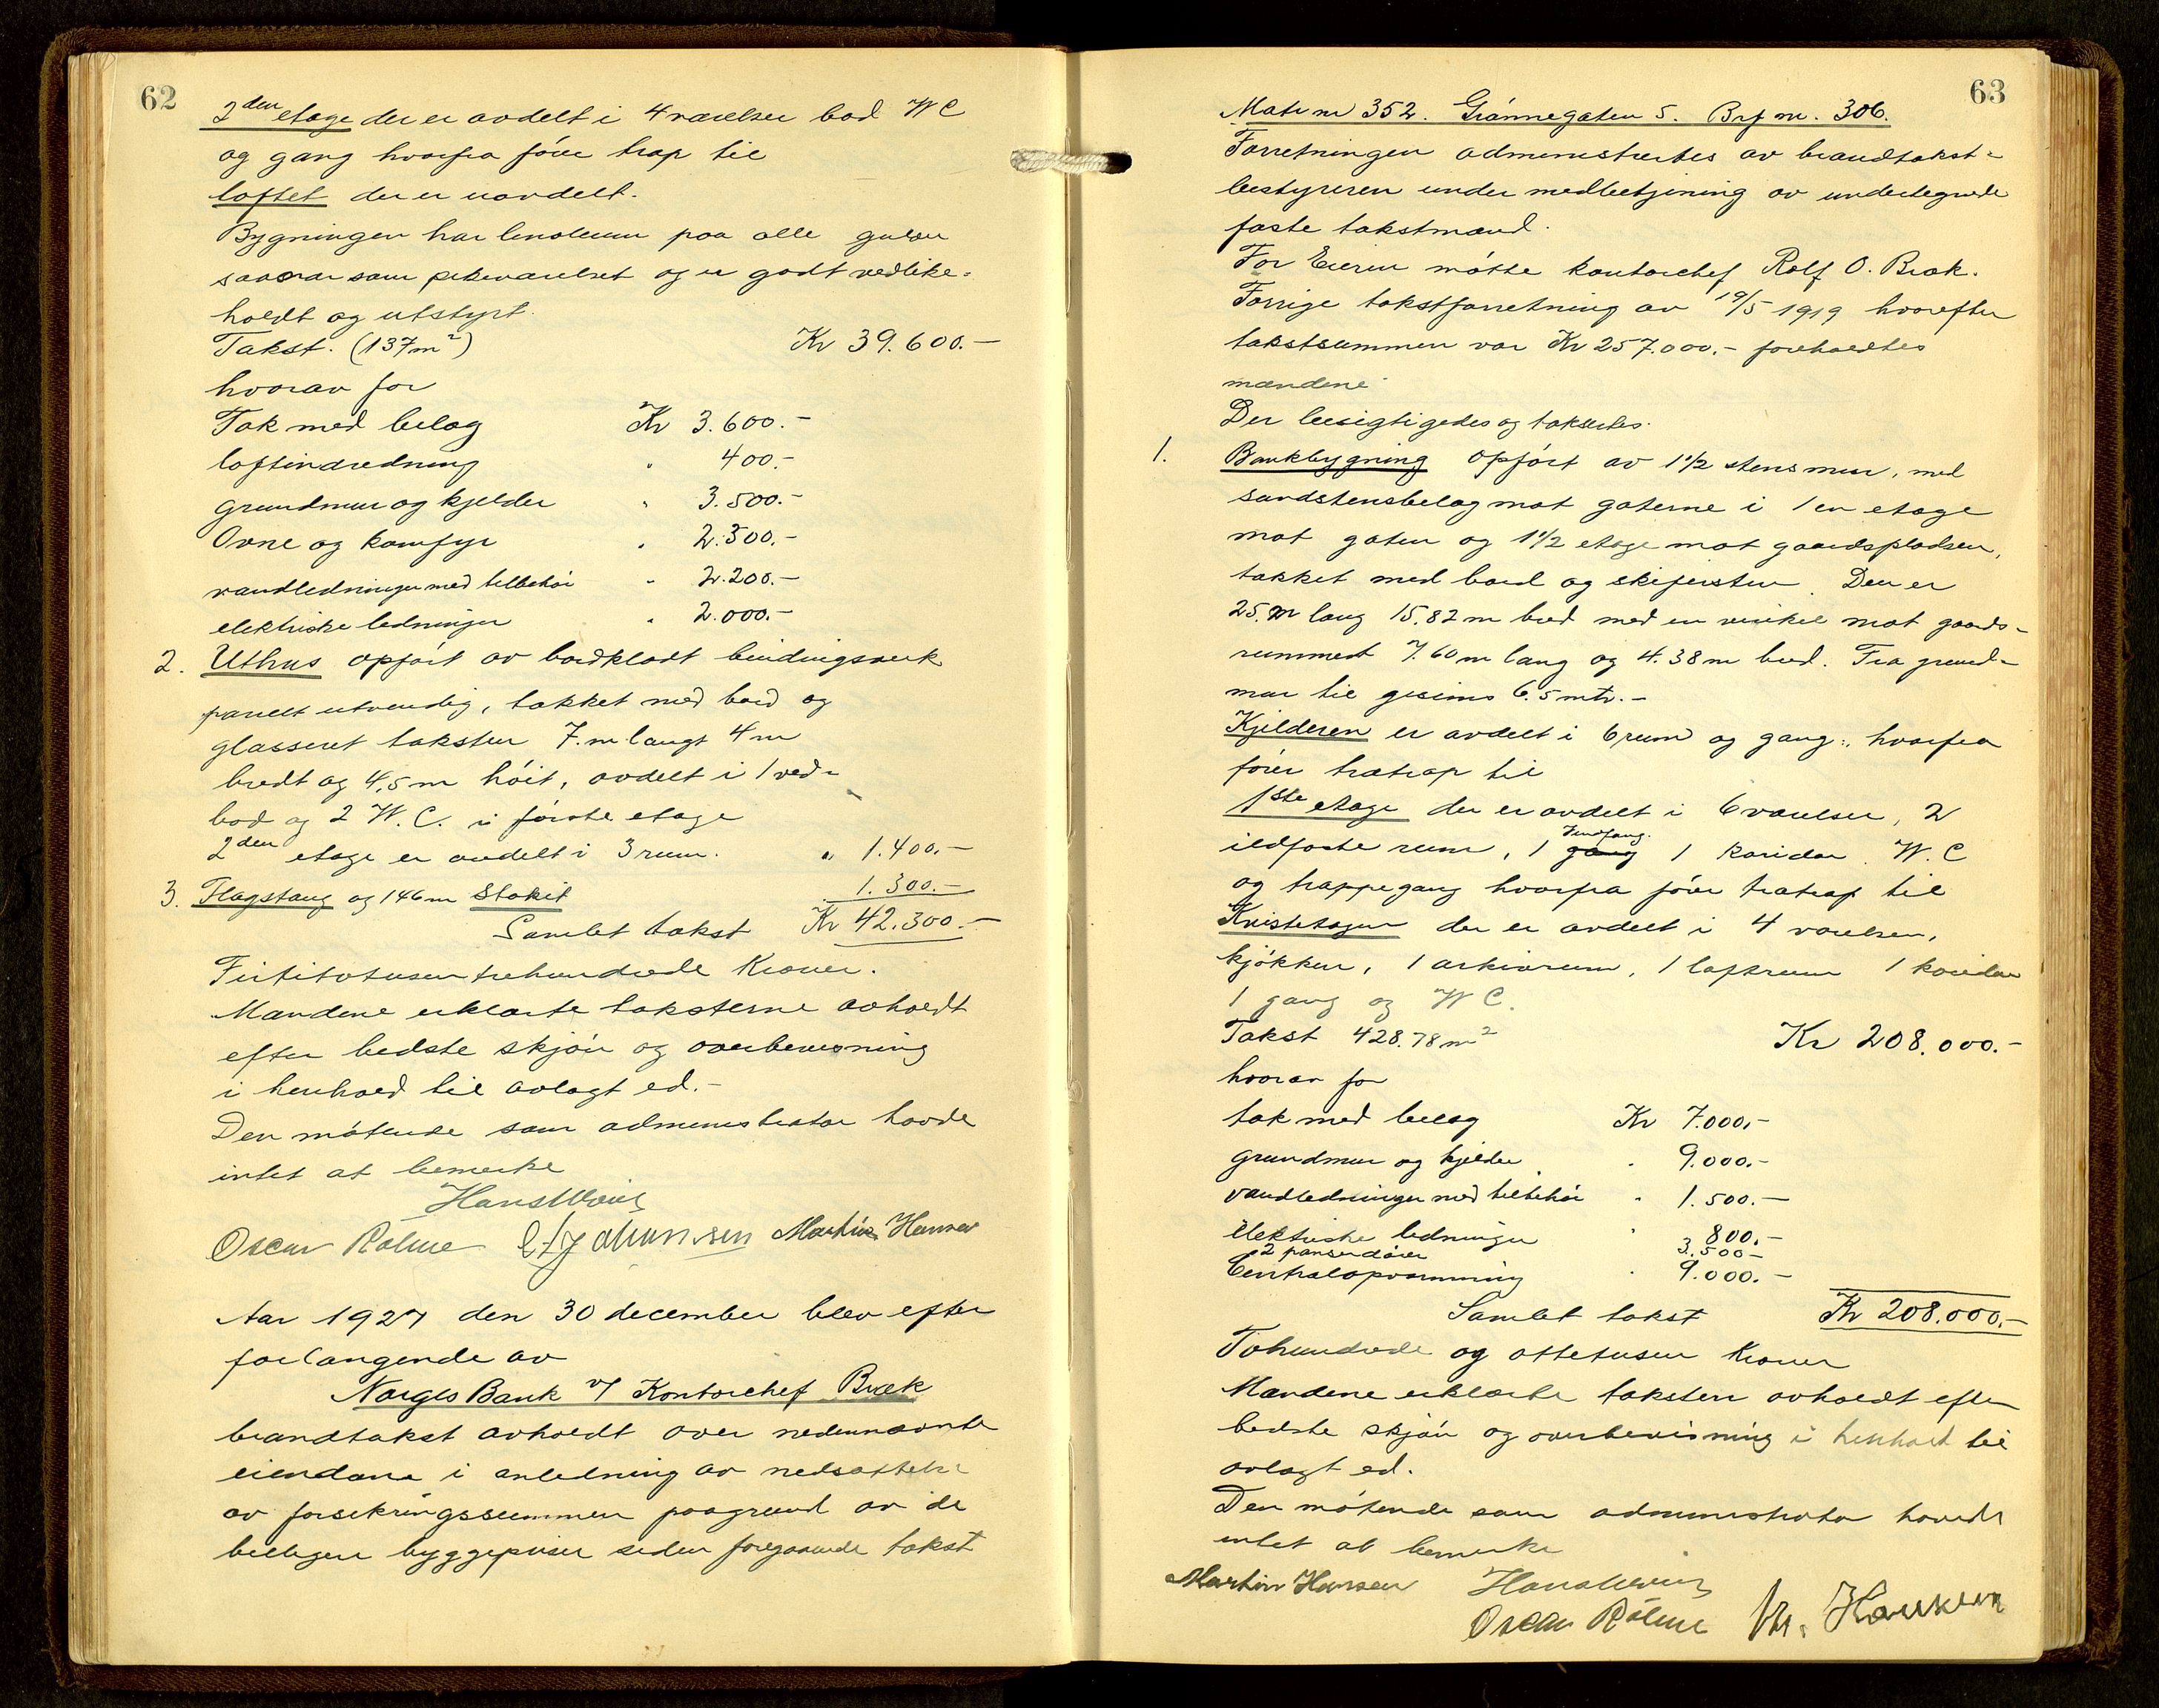 62
2den etage der er avdelt i 4 værelser bad WC
og gang hvorfra fører trap til
loftet der er uavdelt.
Bygningen har linoleum paa alle gulver
saavar som pikeværelset og er godt vedlike-
holdt og utstyrt.
Takst. (137m²) Kr 39.600.-
hvorav for
Tak med belæg Kr 3.600.-
loftindredning " 400.-
grundmur og kjelder " 3.500.-
Ovne og komfyr " 2.300.-
vandledninger med tilbehör " 2.200.-
elektriske ledninger " 2.000.-
2. Uthus opfört av bordklædt bindingsverk
panelt utvendig, tækket med bord og
glasseret taksten 7.m langt 4 m
bredt og 4,5 m höit, avdelt i 1 ved-
bod og 2 W.C. i förste etage
2den etage er avdelt i 3 rum. " 1.400.-
3. Flagstang og 146 m Stakit 1.300.-
Samlet takst Kr 42.300.-
Firtitotusentrehundrede Kroner.
Mændene erklærte taksterne avholdt
efter bedste skjön og overbevisning
i henhold til avlagt ed.-
Den mötende som administrator havde
intet at bemerke
Oscar Rölme Johansen Martin Hansen
Aar 1927 den 30 december blev efter
forlangende av
Norges Bank v/ Kontorchef Bræk
brandtakst avholdt over nedennævnte
eiendom i anledning av nedsættelse
av forsikringssummen paagrund av de
billigere byggepriser siden foregaaende takst
63
Matr nr 352. Grönnegaten 5. Brf nr. 306.
Forretningen administrertes av brandtakst-
bestyreren under medbetjening av undertegnede
faste takstmænd.
For Eieren mötte kontorchef Rolf O. Bræk.
Forrige takstforretning av 19/5 1919 hvorefter
takstsummen var Kr 257.000.- foreholdtes
mændene
Der besigtigedes og takseertes.
1. Bankbygning opfört av 1 1/2 stens mur, med
sandstensbelæg mot gaterne i 1 en etage
mot gaten og 1 1/2 etage mot gaardspladsen,
tækket med bord og skifersten. Den er
25.m lang 15,82 m bred med en vinkel mot gaards-
rummet 7.60 m lang og 4.38 m bred. Fra grund-
mur til gesims 6.5 mtr.-
Kjelderen er avdelt i 6 rum og gang, hvorfra
förer trætrap til
1ste etage der er avdelt i 6 værelser, 2
ildfaste rum, 1 gang Vindfang. 1 koridor. W.C
og trappegang hvorfra förer trætrap til
Kvistetagen der er avdelt i 4 værelser,
kjökken, 1 arkivrum, 1 loftrum 1 koridor
1 gang og WC.
Takst 428.78 m² Kr 208.000.-
hvorav for
tak med belæg Kr 7.000,-
grundmur og kjelder " 9.000.-
vandledninger med tilbehör " 1.500.-
Elektriske ledninger " 800.-
2 panserdörer 3.500-
Centralopvarmning " 9.000.-
Samlet takst Kr 208.000.-
Tohundrede og ottetusen Kroner
Mændene erklærte taksten avholdt efter
bedste skjön og overbevisning i henhold til
avlagt ed.
Den mötende som administrator havde
intet at bemerke
Martin Hansen
Oscar Rölme